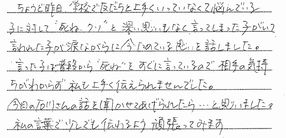 ちょうど昨日、学校で友だちと上手くいっていなくて悩んでいる
子に対して"死ね、クソ"と深い思いもなく言ってしまった子がいて
言われた子が涙ながらに今ためている思いを話しました。
言った子は普段から"死ね"とすぐに言っているので相手の気持
ちがわからず私も上手く伝えられませんでした。
今日の石川さんの話を聞かせてあげられたら…と思いました。
私の言葉で少しでも伝わるよう頑張ってみます